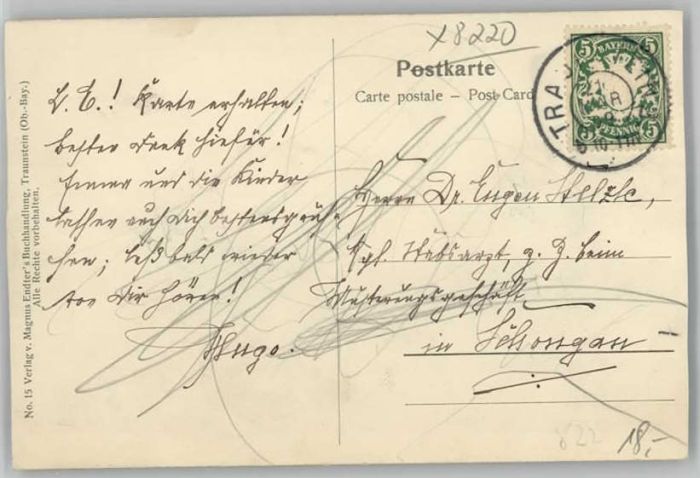 x8220
Postkarte
Carte postale – Post Card
5 BAYERN 5
5 PFENNIG 5
TRAUNSTEIN
L. E.! Karte erhalten;
besten Dank hiefür!
Emma und die Kinder
lassen auch Dich bestens grüs-
sen; laß bald wieder
von Dir hören!
Hugo.
Herrn Dr. Eugen Stelzle,
Kgl. Stabsarzt, z. Z. beim
Musterungsgeschäft
in Schongau
No. 15 Verlag v. Magnus Endter's Buchhandlung, Traunstein (Ob.-Bay.)
Alle Rechte vorbehalten.
822
18,-